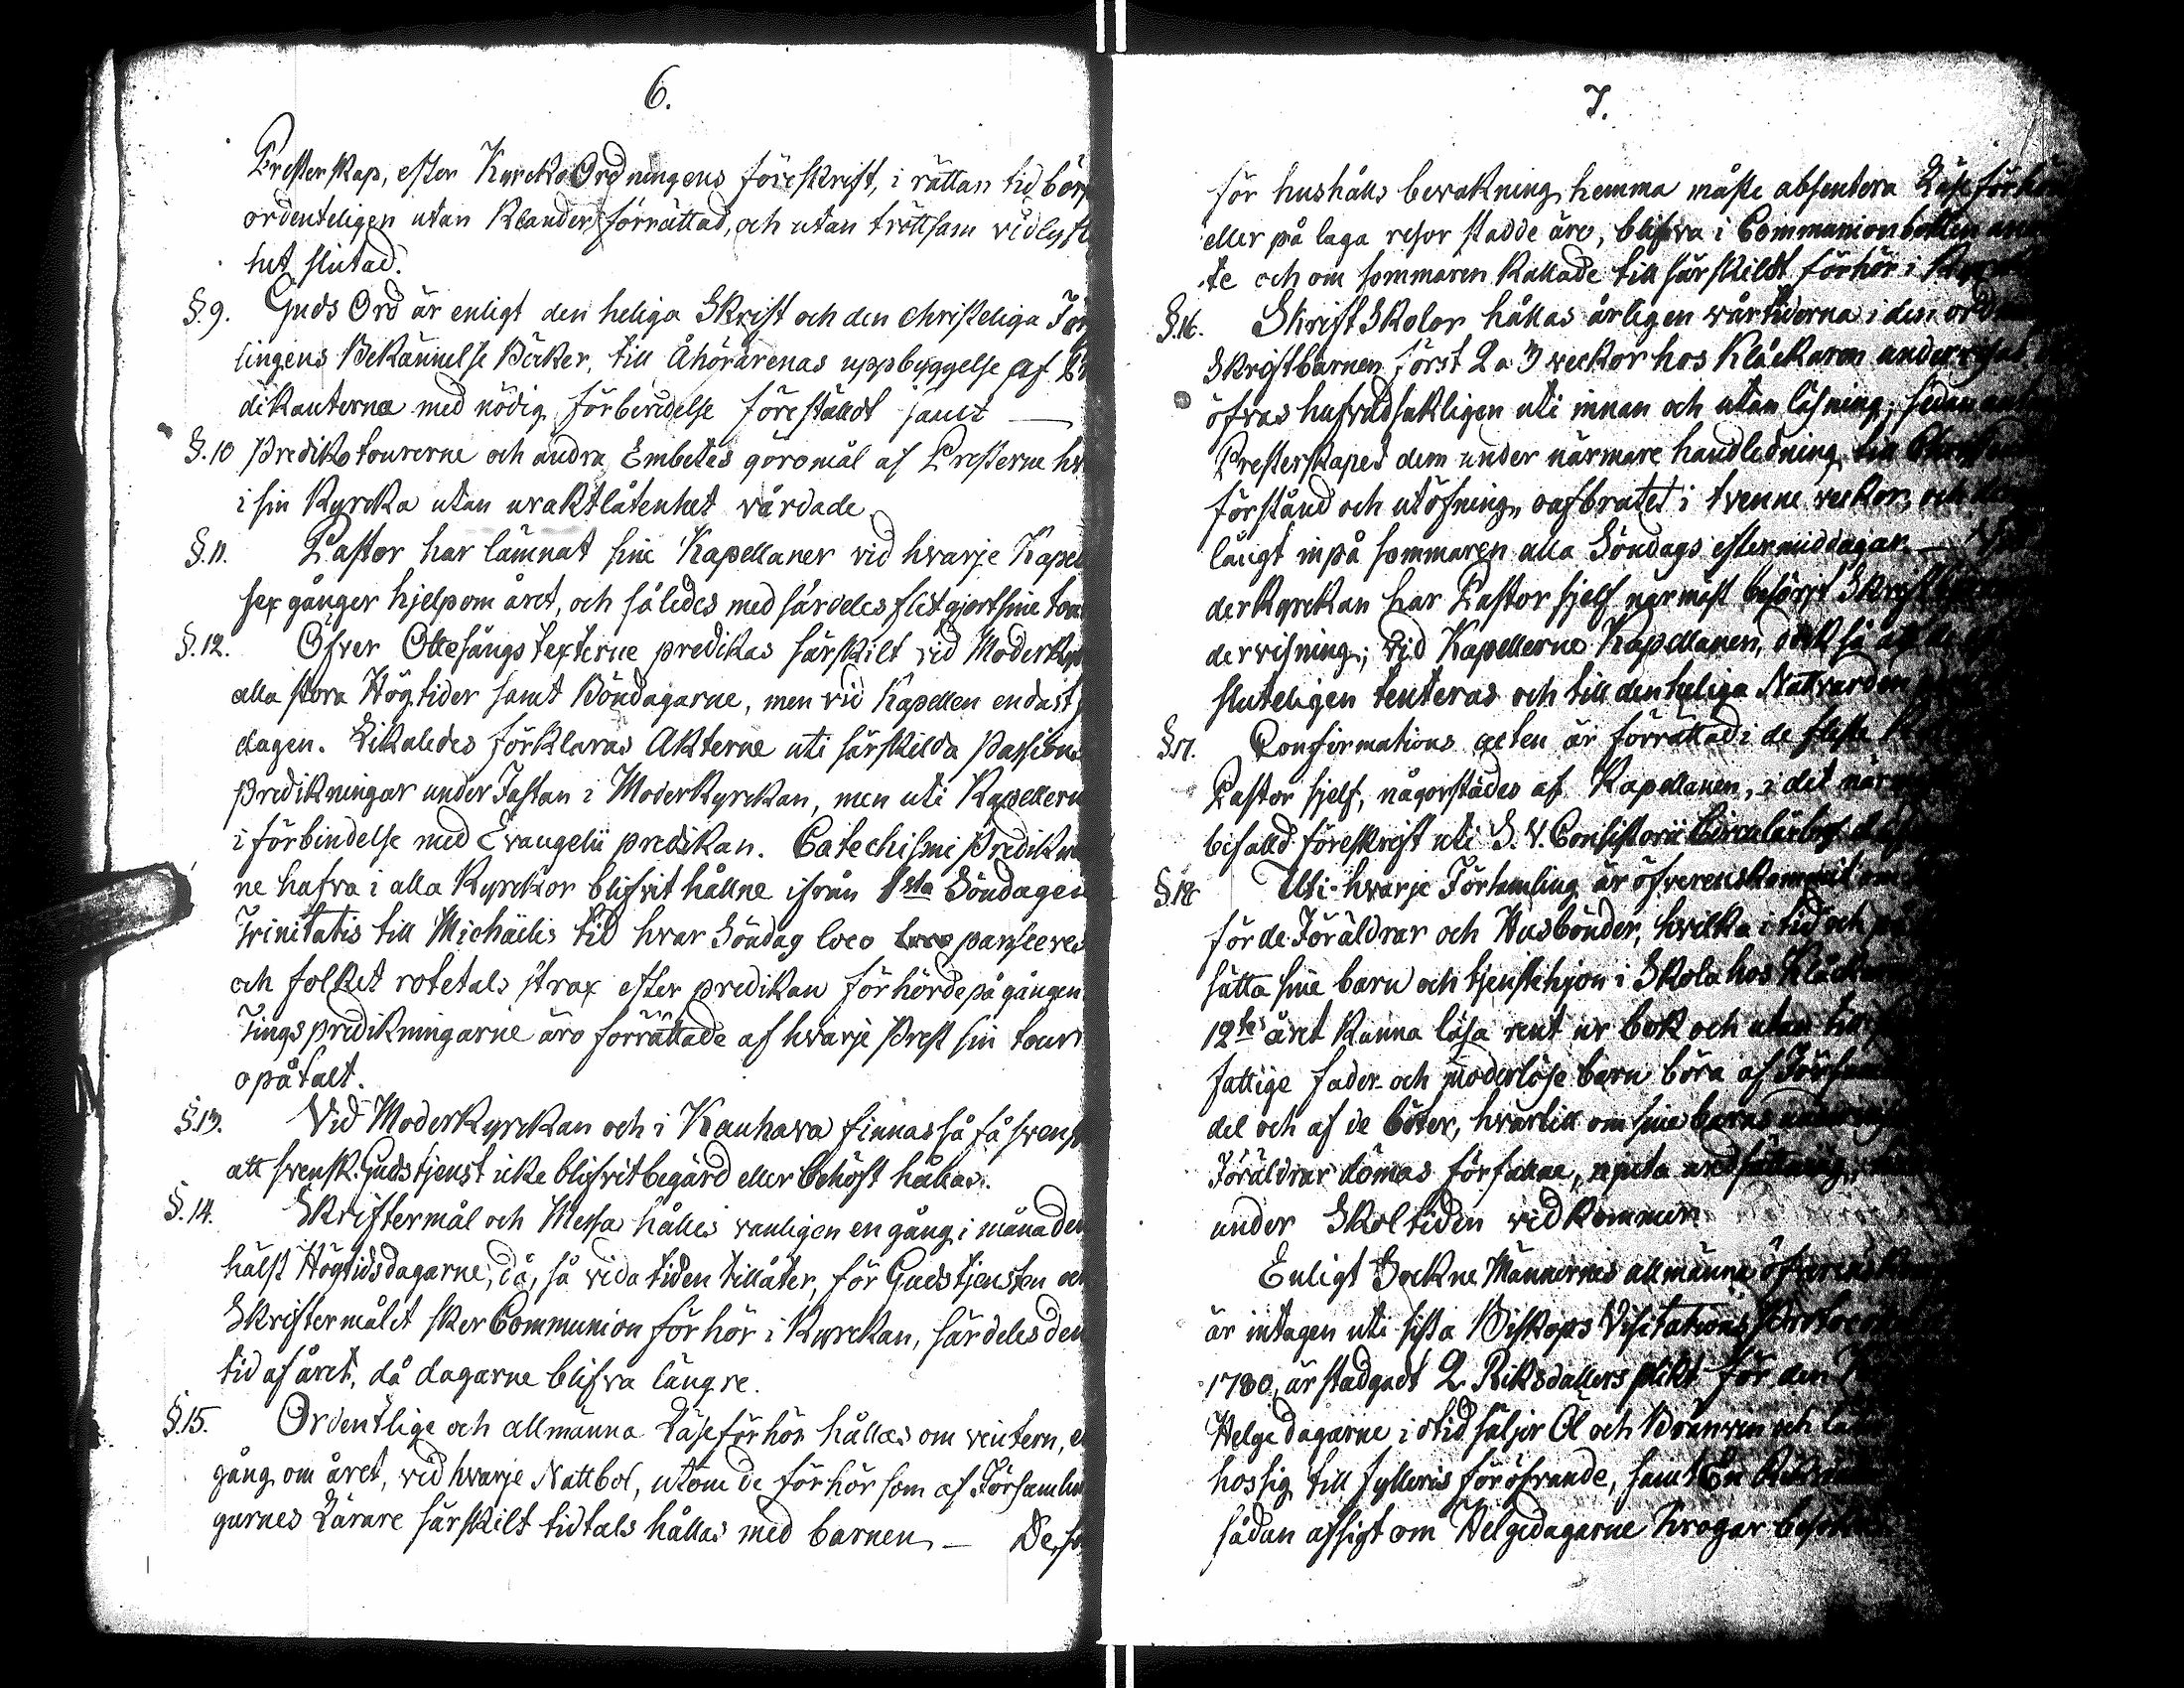 6.
Presterskap, efter KyrckoOrdningens föreskrift, i rättan tid börj
ordenteligen utan klander förrättad, och utan tröttsam vidlyft
het slutad.
§.9. Guds Ord är enligt den heliga Skrift och den christeliga För
lingens Bekännelse Böcker, till Åhörarenas uppbyggelse af
dikanterna med nödig förberedelse föreställdt samt —
§.10 Predikotourerne och andra Embetes göromål af Presterne hv
i sin Kyrcka utan uraktlåtenhet vårdade.
§.11. Pastor har lämnat sine Kapellaner vid hvarje Kapel
sex gånger hjelp om året, och således med särdeles flit gjort sine tou
§.12. Öfver Ottesångs texterne predikas särskilt vid Moderkyr
alla stora Högtider samt Böndagarne, men vid Kapellen endast
dagen. Likaledes förklaras Akterne uti särskilda Passions
predikningar under Fastan i Moderkyrckan, men uti Kapellern
i förbindelse med Evangelii predikan. Catechismi Predikni
ne hafva i alla Kyrckor blifvit hållne ifrån 1sta Söndagen
Trinitatis till Michaëlis tid hvar Söndag loco loco
och folket rotetals strax efter predikan förhörde på gången
Tings predikningarne äro förrättade af hvarje Prest sin tour
opåtalt.
§.13. Vid Moderkyrckan och i Kauhava finnas så få svensk
att svensk Gudstjenst icke blifvit begärd eller behöft hållas.
§.14. Skriftermål och Messa hålles vanligen en gång i månaden
hälst Högtidsdagarne, då, så vida tiden tillåter, för Gudstjensten och
Skriftermålet sker Communion förhör i Kyrckan, särdeles den
tid af året, då dagarne blifva längre.
§.15. Ordentlige och allmänna Läseförhör hållas om vintern, e
gång om året, vid hvarje Nattbol, utom de förhör som af Församlin
garnes Lärare särskilt tidtals hållas med barnen. — De, so
7.
för hushålls bevakning hemma måste absentera Läseförhör
eller på laga resor stadde äro, blifva i Communionboken an
te och om sommaren kallade till särskildt förhör i Kyrck
§.16. Skrift Skolor hållas årligen vårtiderna i den ord
Skriftbarnen först 2 a 3 veckor hos Klåckaren undervisas
öfvas hufvudsakligen uti innan och utan läsning; sedan
Presterskapet dem under närmare handledning till
förstånd och utöfning, oafbrutet i tvenne veckor, och
långt inpå sommaren alla Söndags eftermiddagar. —
derkyrckan har Pastor sjelf närmast besörjt Skrift
dervisning; vid Kapellerne Kapellanen, dock så att de
sluteligen tenteras och till den heliga Nattvarden
§.17. Confirmations acten är förrättad i de fleste
Pastor sjelf, någorstädes af Kapellanen, i det när
befalld föreskrift uti S. V. Consistorii Circulärbref
§.18. Uti hvarje Församling är öfverenskommit om
för de Föräldrar och Husbönder, hvilka i tid och
sätta sine barn och tjenstehjon i Skola hos Klåckar
12te året kunna läsa rent ur bok och utan
fattige fader och moderlöse barn böra af Församl
del och af de böter, hvartill om sine barns undervisn
Föräldrar dömas förfallne, njuta
under Skoltiden vidkommer.
Enligt SockneMännernes allmänna öfverensk
är intagen uti sista Biskops Visitations Protocol
1780, är stadgadt 2 Riksdallers plikt för den
Helgedagarne i otid säljer Öl och Bränvin och
hos sig till fylleris föröfvande, samt En Riksd
sådan afsigt om Helgedagarne Krogar besök